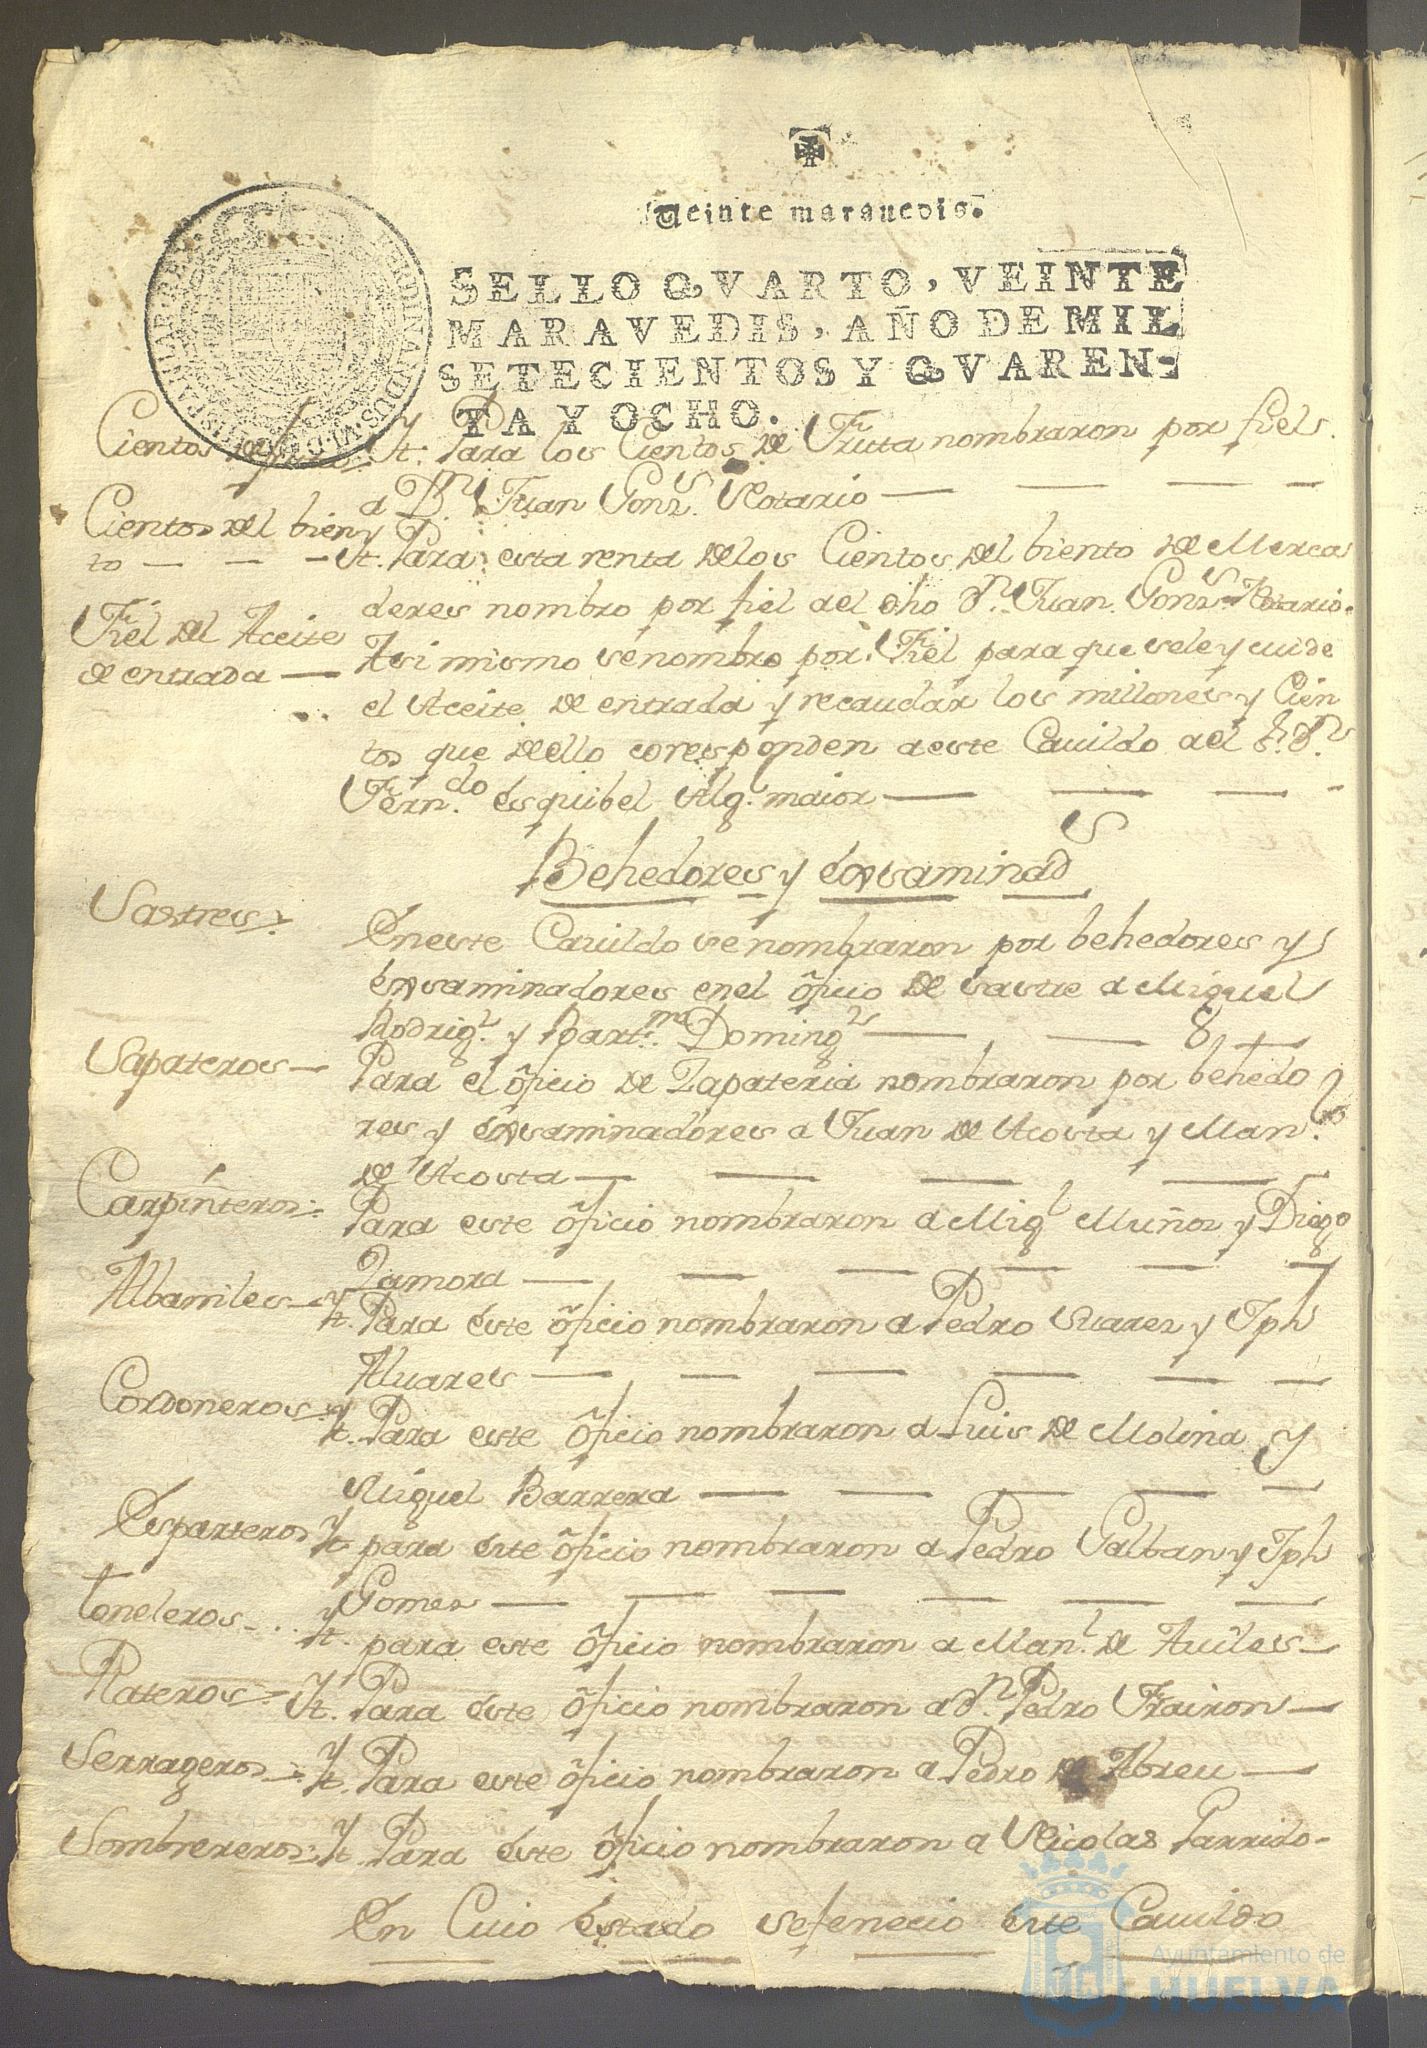 Veinte marauedis.
SELLO QVARTO, VEINTE
MARAVEDIS, AÑO DE MIL
SETECIENTOS Y QVAREN-
TA Y OCHO.
FERDINANDUS. VI. D. G. HISPANIAR. REX.
Cientos de fruta Yt. Para los Cientos de Fruta nombraron por fiels.
a Dn. Juan Gonzs. Notario
Cientos del bien
to - - - Yt. Para esta renta de los Cientos del biento de Merca
deres nombro por fiel ael dho Dn. Juan Gonzs. Notario.
Fiel del Aceite
de entrada
Asimismo se nombro por Fiel para que sele y cuide
el Aceite de entrada y recaudar los millones y Cien
tos que dello coresponden a este Cauildo ael
Ferndo. Esquibel Algl. maior
Behedores y Exsaminads
Sastres
En este Cauildo se nombraron por behedores y
exsaminadores en el oficio de sastre a Miguel
Rodrigz. y Bartme. Domingz
Sapateros
Para el oficio de Zapateria nombraron por behedo
res y exsaminadores a Juan de Acosta y Man.
de Acosta
Carpinteros
Para este oficio nombraron a Migl Muños y Diego
Zamora
Albamiles - Yt. Para este oficio nombraron a Pedro Suarez y Jph
Aluares
Cordoneros - Yt. Para este oficio nombraron a Luis de Molina y
Miguel Barrera
Esparteros Yt. para este oficio nombraron a Pedro Galban y Jph
Gomez
toneleros - Yt. para este oficio nombraron a Manl. de Auiles
Plateros - Yt. Para este oficio nombraron a Dn. Pedro Frairon
Serrageros - Yt. Para este oficio nombraron a Pedro de Abreu
Sombrereros - Yt. Para este oficio nombraron a Nicolas Parrido-
En Cuio Estado se fenecio este Cauildo
Ayuntamiento de
HUELVA